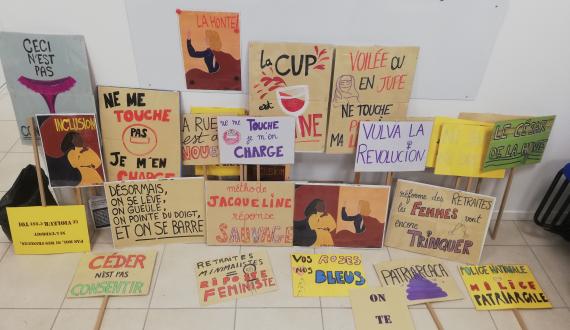 LA HONTE
CECI
N'EST
PAS
la CUP
est
VOILÉE OU
EN JUPE
NE TOUCHE
MA
NE ME
TOUCHE
PAS
JE M'EN
CHARGE
INCLUSION
A RUE
est à
NOUS
ne me TOUCHE
je m'en
CHARGE
VULVA LA
REVOLUCION
LE CÉSAR
DE LA HONTE
DÉSORMAIS,
ON SE LÈVE,
ON GUEULE,
ON POINTE DU DOIGT,
ET ON SE BARRE
méthode
JACQUELINE
réponse
SAUVAGE
réforme des RETRAITES
les FEMMES vont
encore
TRINQUER
CÉDER
N'EST PAS
CONSENTIR
RETRAITES
MINIMALISTES =
RIPOSTE
FÉMINISTE
VOS ROSES
NOS BLEUS
PATRIARCACA
ON TE
POLICE NATIONALE
MILICE
PATRIARCALE